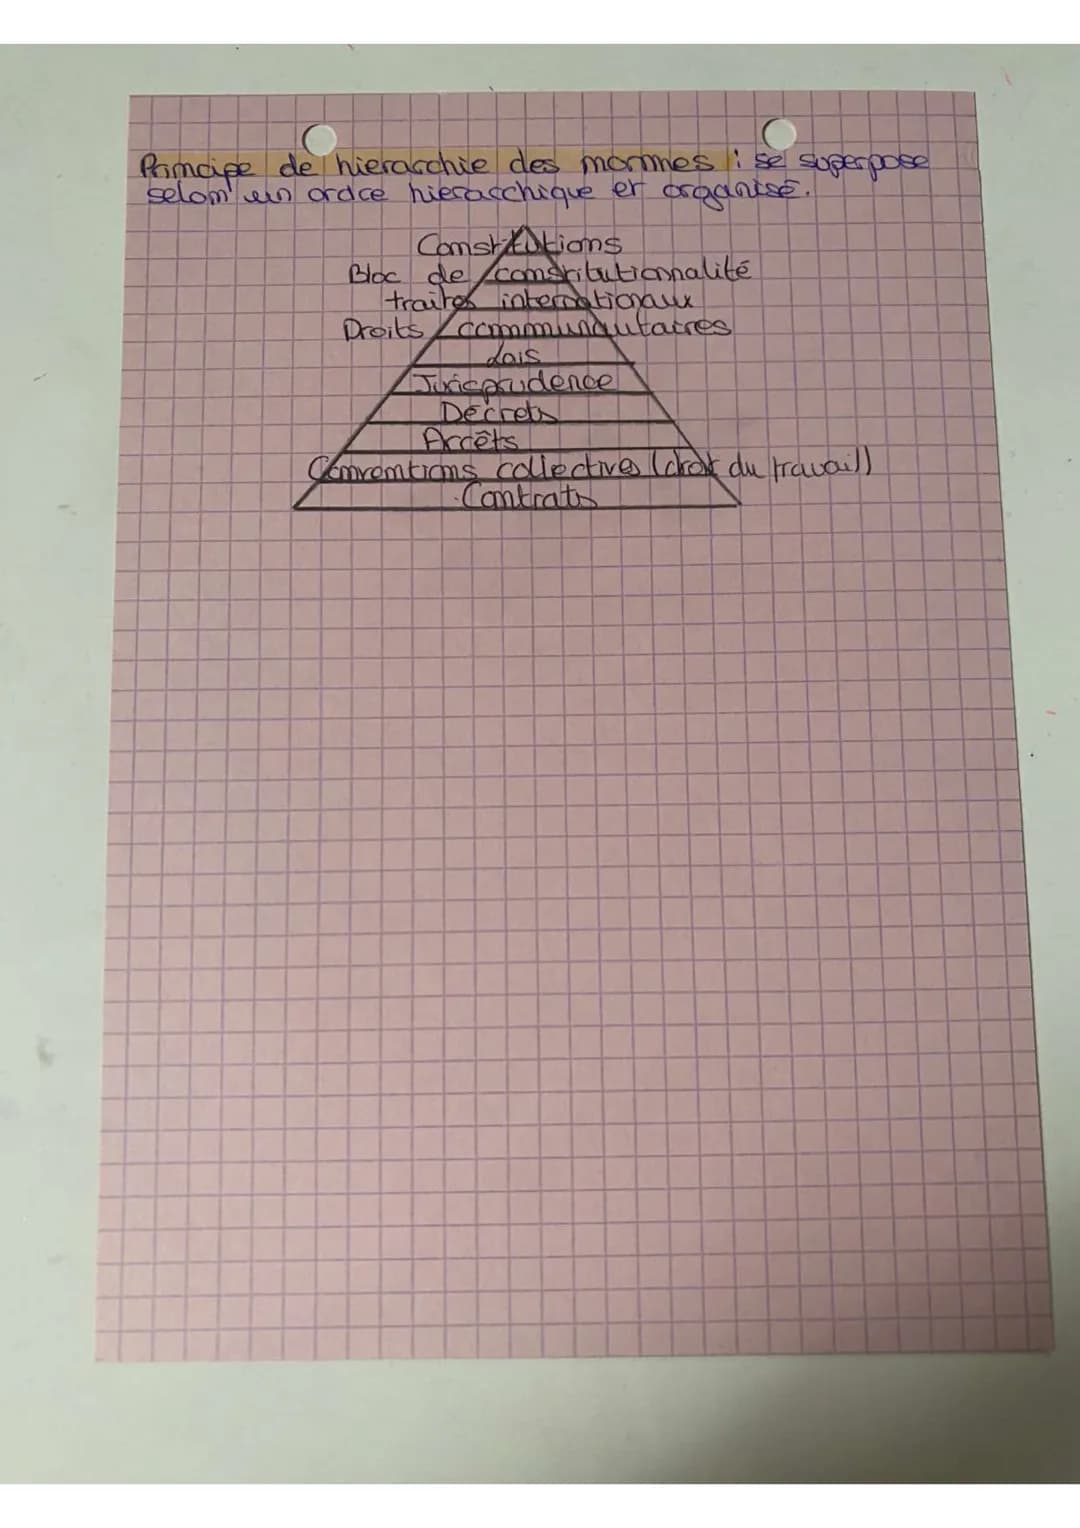 Principe de hierarchie des normes : se superpose
selon un ordre hierarchique et organisé.
Constitutions
Bloc de constitutionnalité
traités internationaux
Droits communautaires
Lois
Jurisprudence
Décrets
Arrêts
Conventions collectives (droit du travail)
Contrats